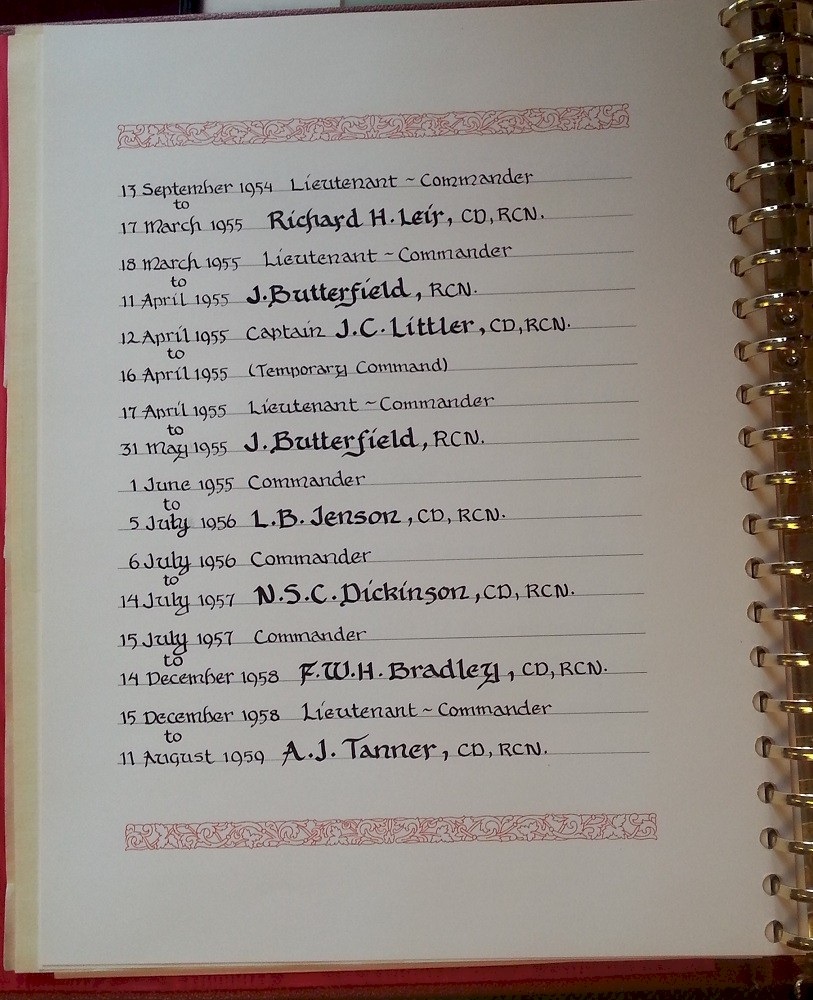 13 September 1954 Lieutenant ~ Commander
to
17 March 1955 Richard H. Leir, CD, RCN.
18 March 1955 Lieutenant ~ Commander
to
11 April 1955 J. Butterfield, RCN.
12 April 1955 Captain J.C. Littler, CD, RCN.
to
16 April 1955 (Temporary Command)
17 April 1955 Lieutenant ~ Commander
to
31 May 1955 J. Butterfield, RCN.
1 June 1955 Commander
to
5 July 1956 L.B. Jenson, CD, RCN.
6 July 1956 Commander
to
14 July 1957 N.S.C. Dickinson, CD, RCN.
15 July 1957 Commander
to
14 December 1958 F.W.H. Bradley, CD, RCN.
15 December 1958 Lieutenant ~ Commander
to
11 August 1959 A.J. Tanner, CD, RCN.